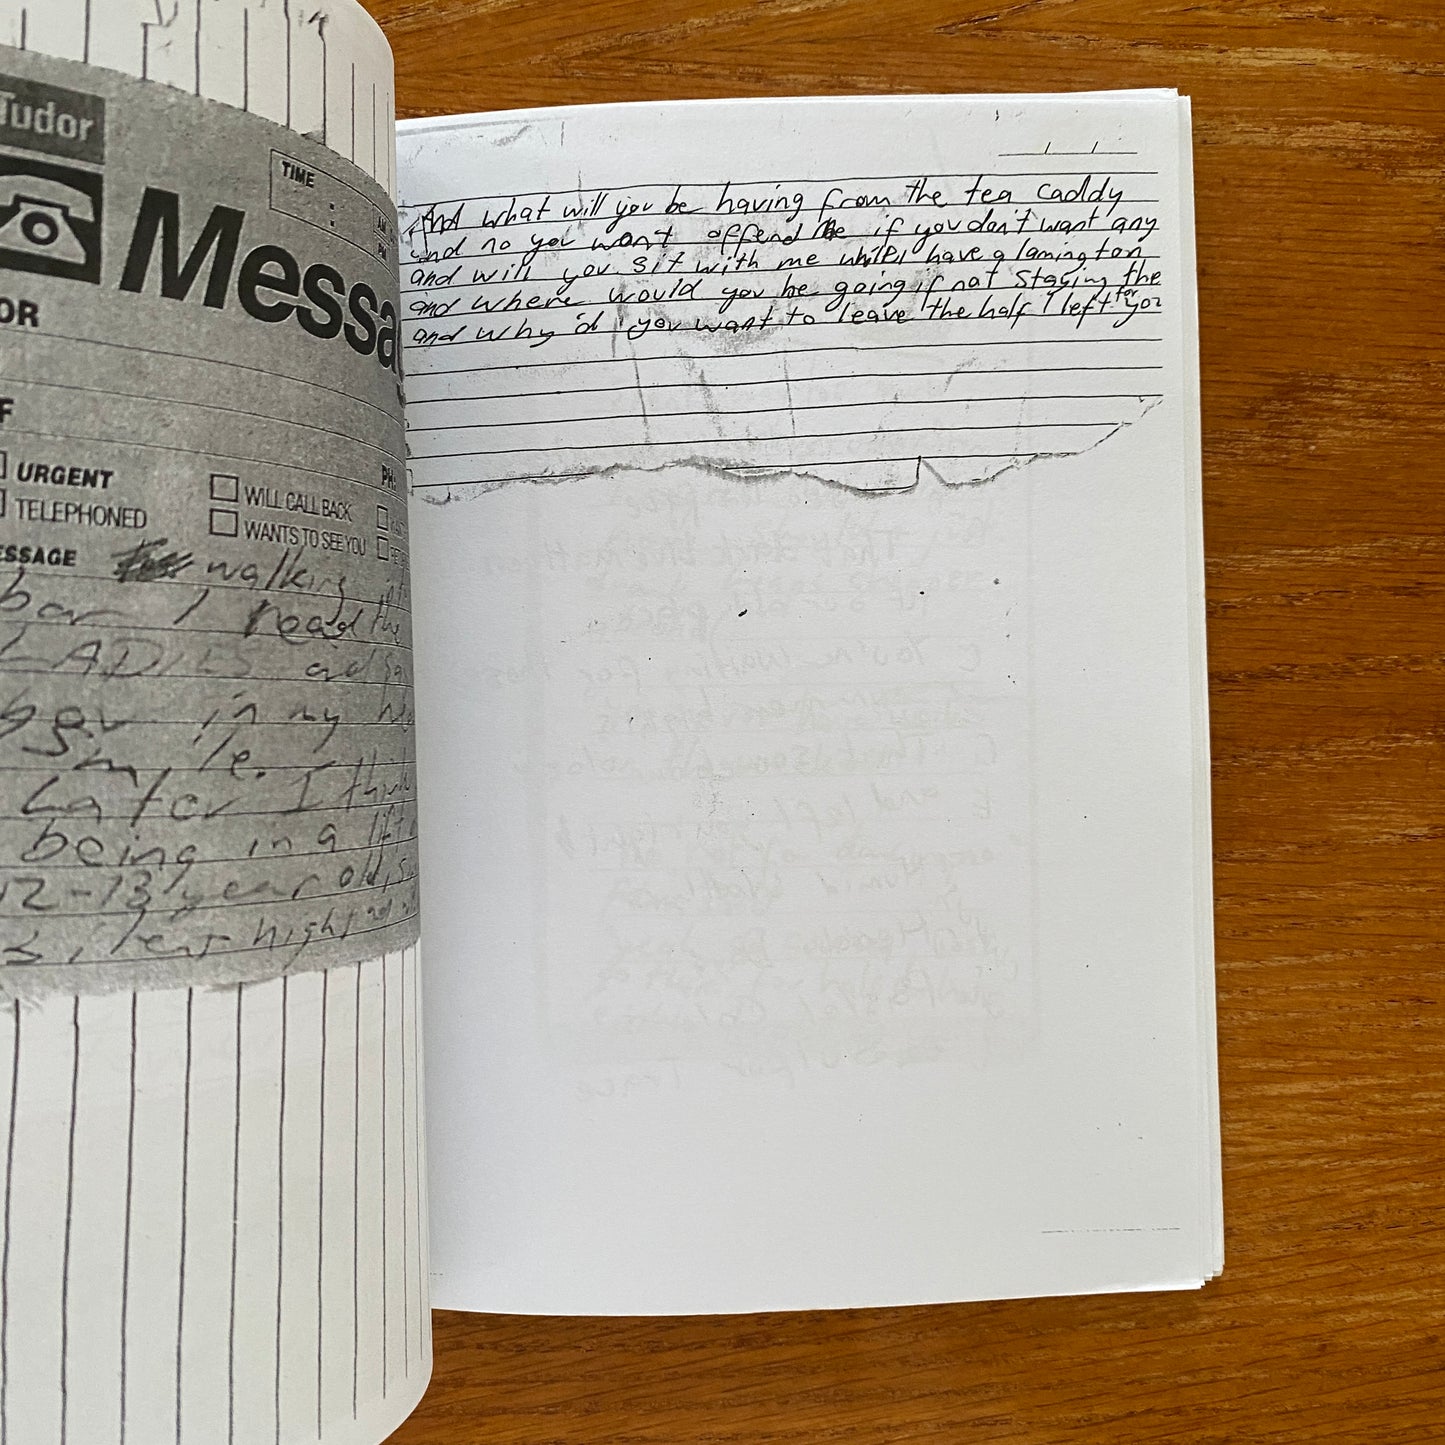 Tudor
TIME
:
AM
PM
Messa
OR
F
PH:
URGENT
TELEPHONED
WILL CALL BACK
WANTS TO SEE YOU
ESSAGE
walking
bar I read the
LADIES and
in my
smile.
Later I think
being in a lift
12-13 year old,
last night
And what will you be having from the tea caddy
and no you wont offend me if you don't want any
and will you sit with me while I have a lamington
and where would you be going if not staying the
and why'd you want to leave the half I left for you